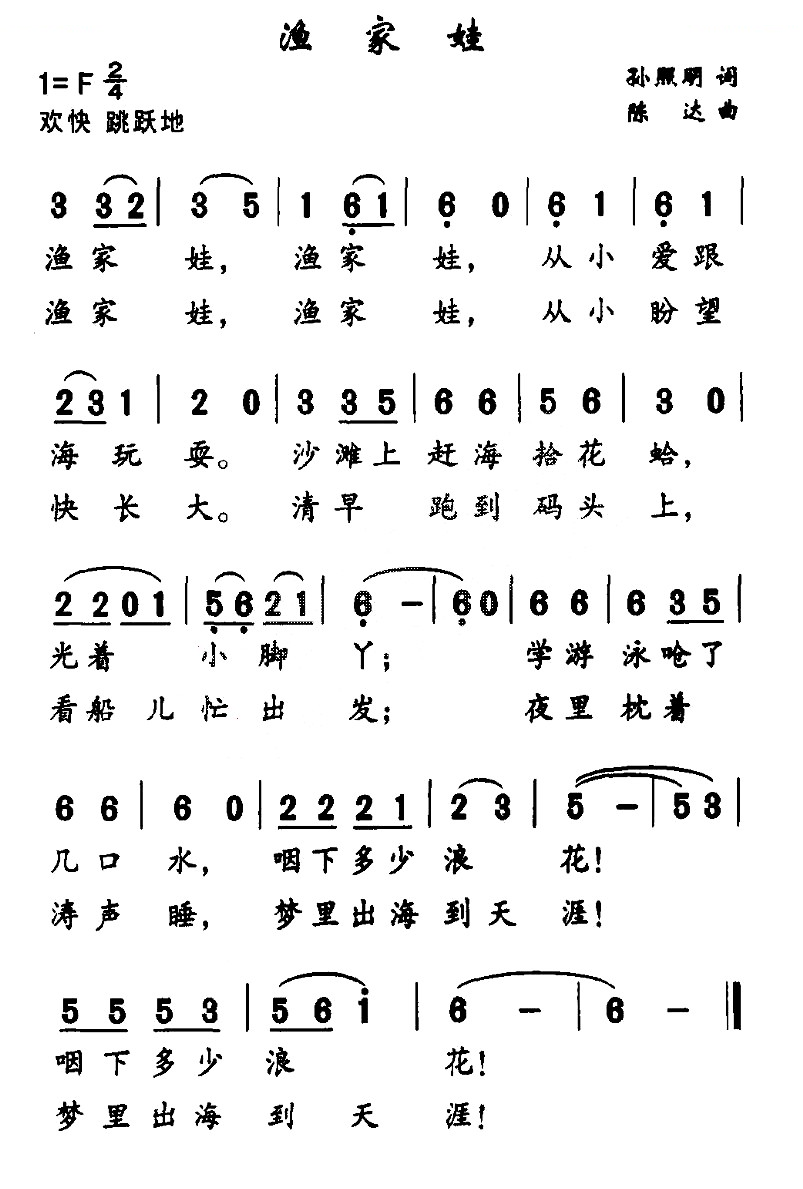 渔家娃
1=F 2/4
孙照明 词
欢快 跳跃地
陈 达 曲
3 32 | 3 5 | 1 61 | 6 0 | 6 1 | 6 1 |
渔家 娃， 渔家 娃， 从小 爱跟
渔家 娃， 渔家 娃， 从小 盼望
23 1 | 2 0 | 3 35 | 6 6 | 5 6 | 3 0 |
海玩 耍。 沙滩上 赶海 拾花 蛤，
快长 大。 清早 跑到 码头 上，
22 01 | 56 21 | 6 - | 6 0 | 6 6 | 6 35 |
光着 小脚 丫； 学游 泳呛了
看船 儿忙出 发； 夜里 枕着
6 6 | 6 0 | 22 21 | 2 3 | 5 - | 5 3 |
几口 水， 咽下多少 浪 花！
涛声 睡， 梦里出海 到天 涯！
55 53 | 56 i | 6 - | 6 - ‖
咽下多少 浪 花！
梦里出海 到 天 涯！